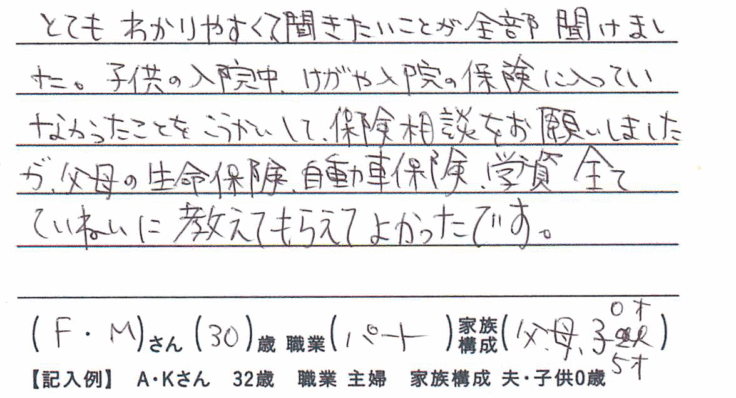 とてもわかりやすくて聞きたいことが全部聞けまし
た。子供の入院中、けがや入院の保険に入ってい
なかったことをこうかいして、保険相談をお願いしました
が、父母の生命保険、自動車保険、学資全て
ていねいに教えてもらえてよかったです。
(F・M)さん (30)歳 職業(パート)家族構成(父、母、子 0才 5才)
【記入例】 A・Kさん 32歳 職業 主婦 家族構成 夫・子供0歳